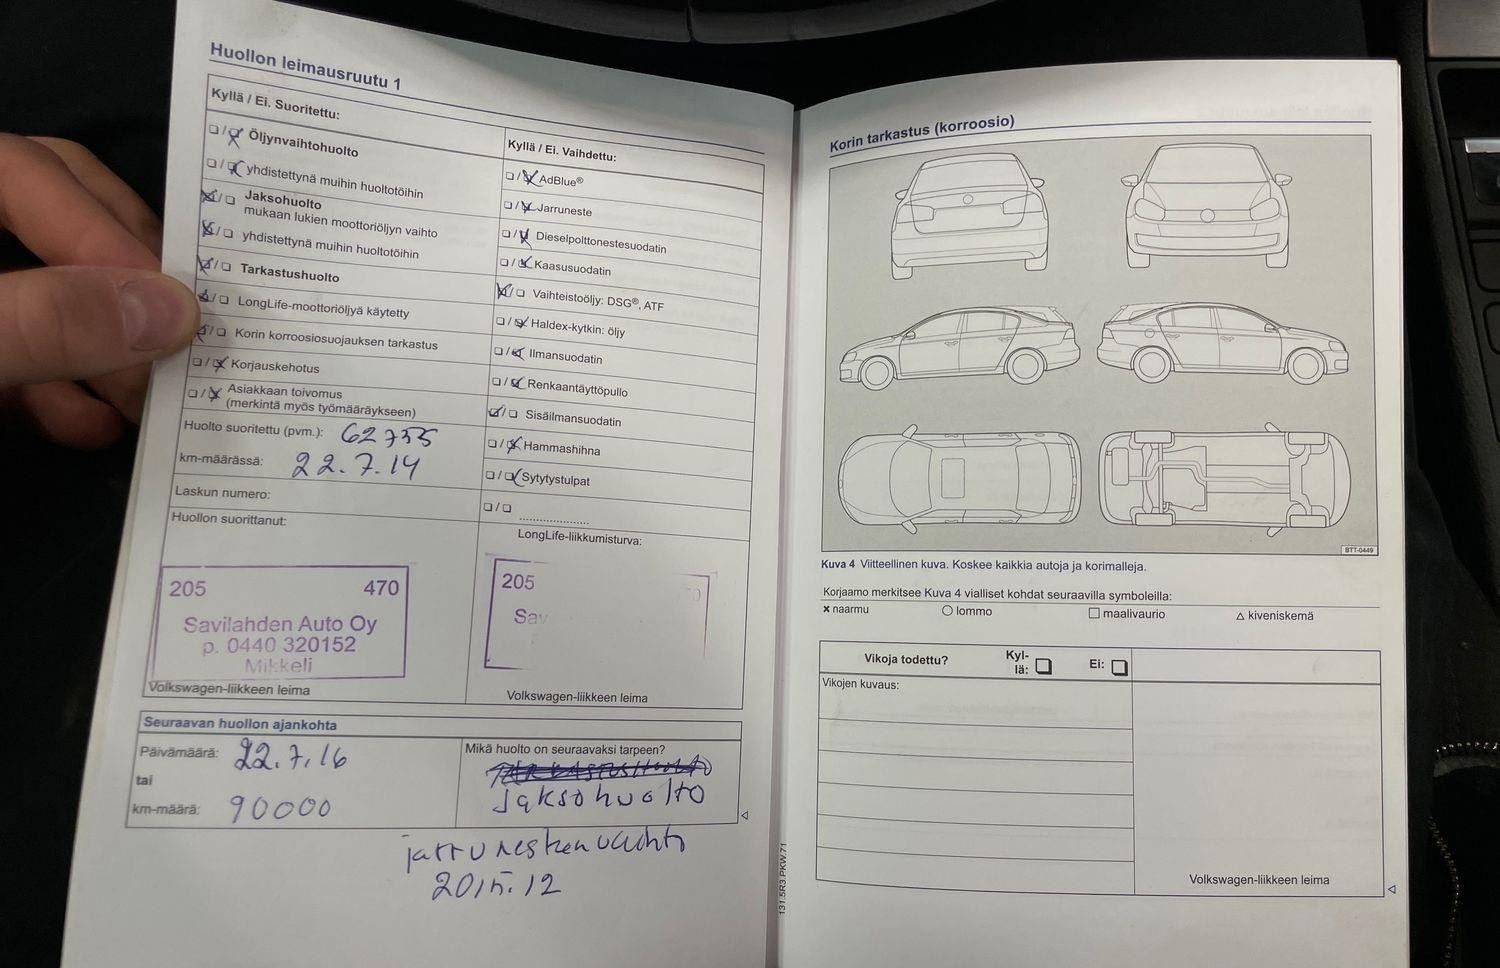 Huollon leimausruutu 1
Kyllä / Ei. Suoritettu:
☐/☒ Öljynvaihtohuolto
☐/☒ yhdistettynä muihin huoltotöihin
☒/☐ Jaksohuolto
mukaan lukien moottoriöljyn vaihto
☒/☐ yhdistettynä muihin huoltotöihin
☒/☐ Tarkastushuolto
☒/☐ LongLife-moottoriöljyä käytetty
☒/☐ Korin korroosiosuojauksen tarkastus
☐/☒ Korjauskehotus
☐/☒ Asiakkaan toivomus
(merkintä myös työmääräykseen)
Huolto suoritettu (pvm.): 62755
km-määrässä: 22.7.14
Laskun numero:
Huollon suorittanut:
205 470
Savilahden Auto Oy
p. 0440 320152
Mikkeli
Volkswagen-liikkeen leima
Kyllä / Ei. Vaihdettu:
☐/☒ AdBlue®
☐/☒ Jarruneste
☐/☒ Dieselpolttonestesuodatin
☐/☒ Kaasusuodatin
☒/☐ Vaihteistoöljy: DSG®, ATF
☐/☒ Haldex-kytkin: öljy
☐/☒ Ilmansuodatin
☐/☒ Renkaantäyttöpullo
☒/☐ Sisäilmansuodatin
☐/☒ Hammashihna
☐/☒ Sytytystulpat
☐/☐ ......................
LongLife-liikkumisturva:
205
Sav
Volkswagen-liikkeen leima
Seuraavan huollon ajankohta
Päivämäärä: 22.7.16
tai
km-määrä: 90000
Mikä huolto on seuraavaksi tarpeen?
jaksohuolto
jarrunesteenvaihto
2015.12
131.5R3.PKW.71
Korin tarkastus (korroosio)
BTT-0449
Kuva 4 Viitteellinen kuva. Koskee kaikkia autoja ja korimalleja.
Korjaamo merkitsee Kuva 4 vialliset kohdat seuraavilla symboleilla:
× naarmu ○ lommo □ maalivaurio △ kiveniskemä
Vikoja todettu? Kyl-
lä: ☐ Ei: ☐
Vikojen kuvaus:
Volkswagen-liikkeen leima